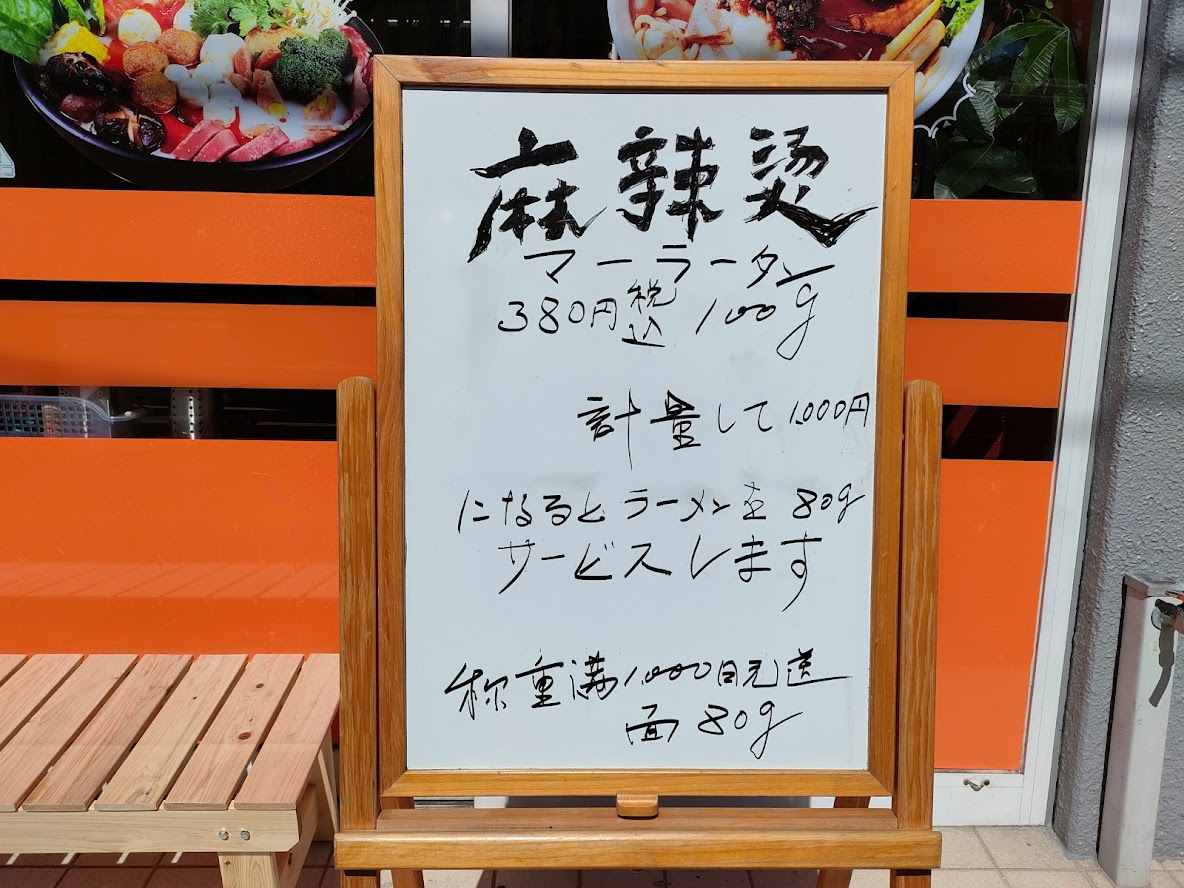 麻辣烫
マーラータン
380円税込 100g
計量して1,000円
になるとラーメンを80g
サービスします
称重满1,000日元送
面80g